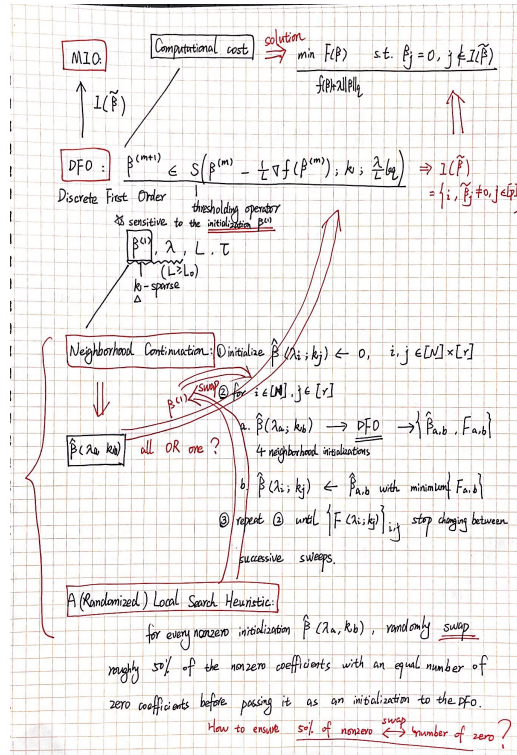 MIO:
Computational cost
solution
min F(β) s.t. βj = 0, j ∉ I(β̃)
f(β)+λ‖β‖q
I(β̃)
DFO: β^(m+1) ∈ S(β^(m) − 1/L ∇f(β^(m)); k; λ/L ℓq) ⇒ I(β̃)
= {i, β̃j ≠ 0, j ∈ [p]}
Discrete First Order
thresholding operator
☆ sensitive to the initialization β^(1)
β^(1), λ, L, τ
(L ≥ L0)
k-sparse
Δ
Neighborhood Continuation: ① initialize β̂(λi; kj) ← 0, i, j ∈ [N] × [r]
swap
② for i ∈ [N], j ∈ [r]
β^(1)
a. β̂(λi; kj) → DFO → {β̂a,b, Fa,b}
β̂(λa, kb) all OR one ?
4 neighborhood initializations
b. β̂(λi; kj) ← β̂a,b with minimum{Fa,b}
③ repeat ② until {F(λi; kj)}i,j stop changing between
successive sweeps.
A (Randomized) Local Search Heuristic:
for every nonzero initialization β̂(λa, kb), randomly swap
roughly 50% of the nonzero coefficients with an equal number of
zero coefficients before passing it as an initialization to the DFO.
How to ensure 50% of nonzero swap ↔ number of zero ?